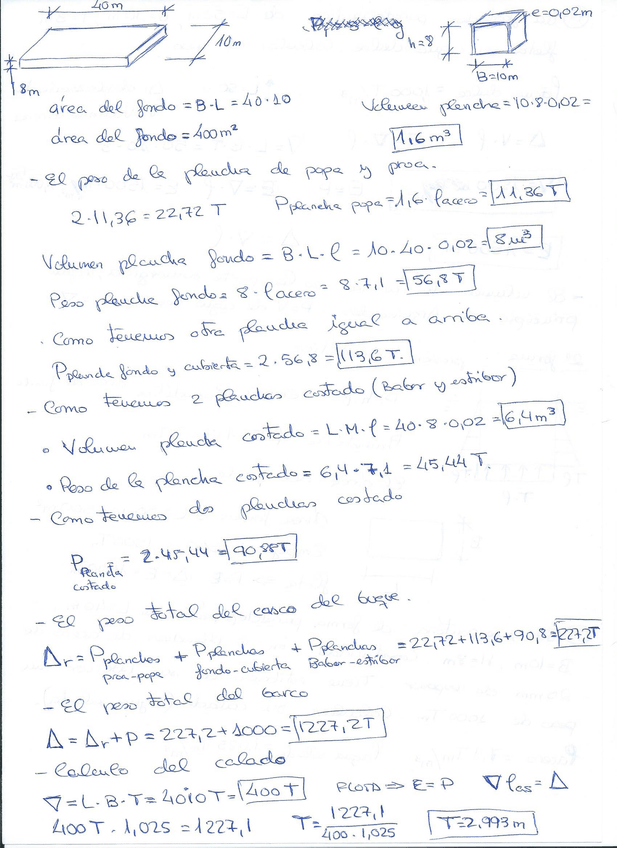 40m
10m
8m
e=0,02m
h=8
B=10m
área del fondo = B·L = 40·10
Volumen plancha = 10·8·0,02 =
área del fondo = 400m²
1,6 m³
- El peso de la plancha de popa y proa.
2·11,36 = 22,72 T
Pplancha popa = 1,6·ρacero = 11,36 T
Volumen plancha fondo = B·L·ℓ = 10·40·0,02 = 8m³
Peso plancha fondo = 8·ρacero = 8·7,1 = 56,8 T
. Como tenemos otra plancha igual a arriba.
Pplancha fondo y cubierta = 2·56,8 = 113,6 T.
- Como tenemos 2 planchas costado (Babor y estribor)
• Volumen plancha costado = L·M·ℓ = 40·8·0,02 = 6,4m³
• Peso de la plancha costado = 6,4·7,1 = 45,44 T.
- Como tenemos dos planchas costado
P plancha costado = 2·45,44 = 90,88T
- El peso total del casco del buque.
Δr = Pplanchas proa-popa + Pplanchas fondo-cubierta + Pplanchas Babor-estribor = 22,72+113,6+90,8 = 227,2T
- El peso total del barco
Δ = Δr + P = 227,2 + 1000 = 1227,2T
- Calculo del calado
∇ = L·B·T = 40·10 T = 400 T
FLOTA ⇒ E = P
∇ρas = Δ
400 T · 1,025 = 1227,1
T = 1227,1 / 400·1,025
T = 2,993 m